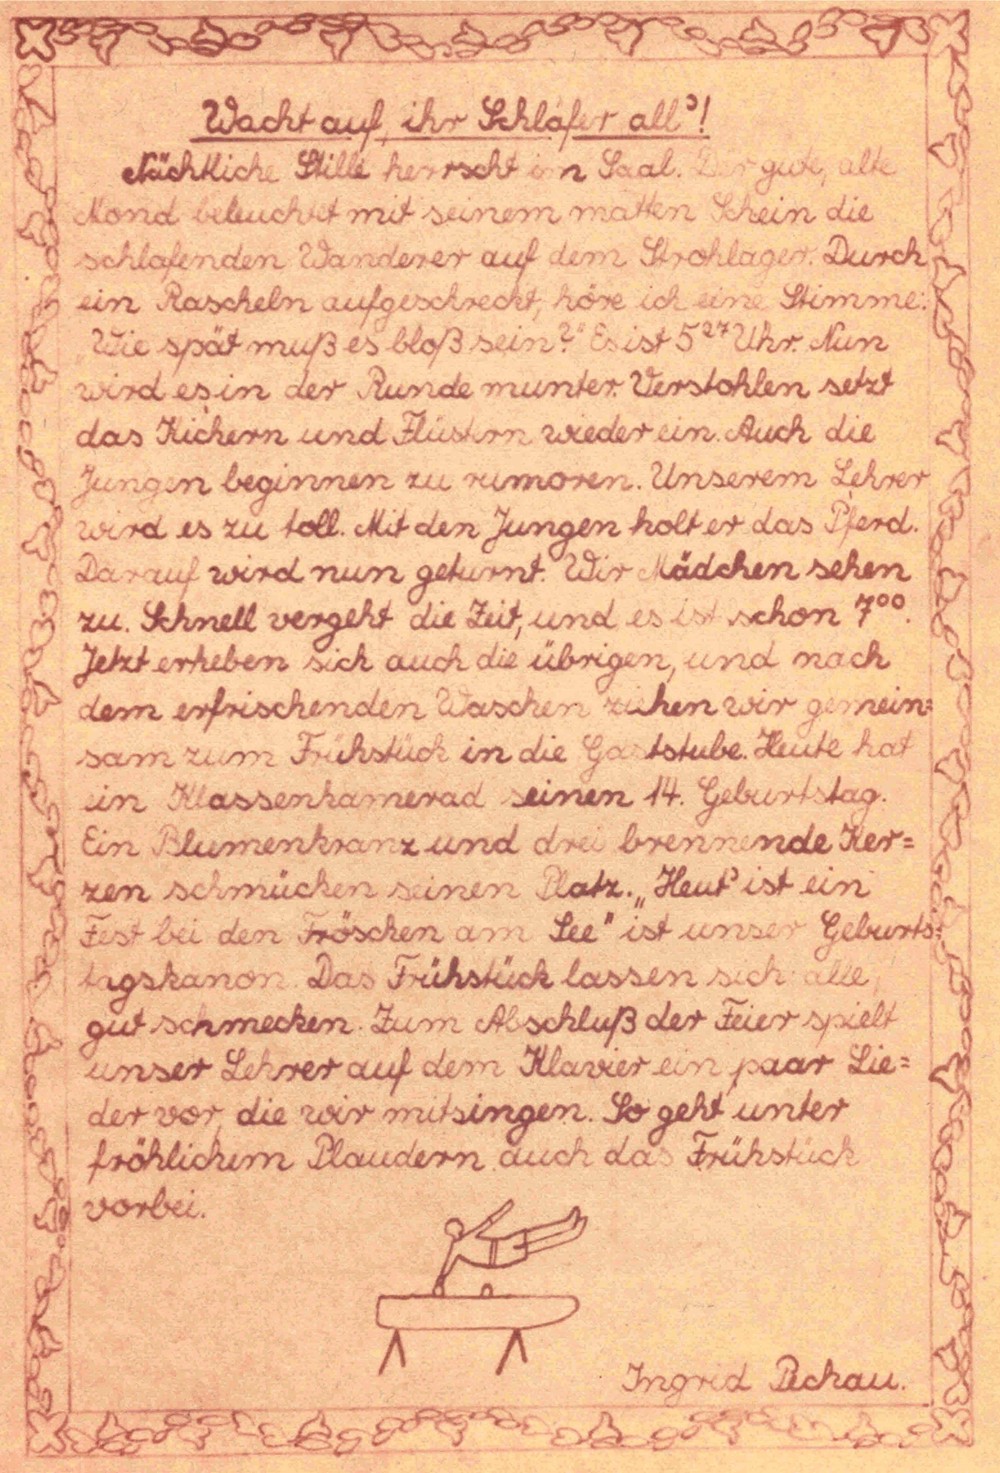 Wacht auf, ihr Schläfer all'!
Nächtliche Stille herrscht im Saal. Der gute, alte
Mond beleuchtet mit seinem matten Schein die
schlafenden Wanderer auf dem Strohlager. Durch
ein Rascheln aufgeschreckt, höre ich eine Stimme:
„Wie spät muß es bloß sein?" Es ist 5²⁷ Uhr. Nun
wird es in der Runde munter. Verstohlen setzt
das Kichern und Flüstern wieder ein. Auch die
Jungen beginnen zu rumoren. Unserem Lehrer
wird es zu toll. Mit den Jungen holt er das Pferd.
Darauf wird nun geturnt. Wir Mädchen sehen
zu. Schnell vergeht die Zeit, und es ist schon 7⁰⁰.
Jetzt erheben sich auch die übrigen, und nach
dem erfrischenden Waschen ziehen wir gemein=
sam zum Frühstück in die Gaststube. Heute hat
ein Klassenkamerad seinen 14. Geburtstag.
Ein Blumenkranz und drei brennende Ker=
zen schmücken seinen Platz. „Heut' ist ein
Fest bei den Fröschen am See" ist unser Geburts=
tagskanon. Das Frühstück lassen sich alle
gut schmecken. Zum Abschluß der Feier spielt
unser Lehrer auf dem Klavier ein paar Lie=
der vor, die wir mitsingen. So geht unter
fröhlichem Plaudern auch das Frühstück
vorbei.
Ingrid Pechau.